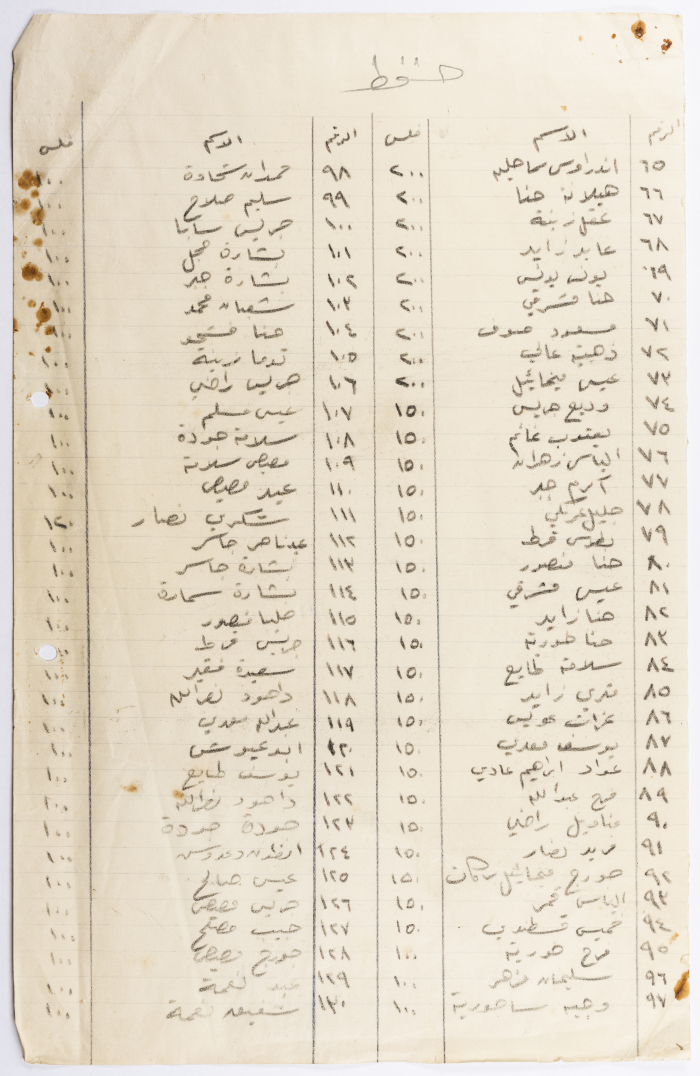 الرقم الاسم فلس الرقم الاسم فلس
٦٥ اندراوس ٢٠٠ ٩٨ حمدان شحادة ١٠٠
٦٦ هيلانة حنا ٢٠٠ ٩٩ سليم صلاح ١٠٠
٦٧ عقل زينة ٢٠٠ ١٠٠ جريس سابا ١٠٠
٦٨ عايد زايد ٢٠٠ ١٠١ بشارة ١٠٠
٦٩ يونس ٢٠٠ ١٠٢ بشارة جبر ١٠٠
٧٠ حنا مشرقي ٢٠٠ ١٠٣ شعبان محمد ١٠٠
٧١ مسعود معروف ٢٠٠ ١٠٤ حنا ١٠٠
٧٢ ذهبية ٢٠٠ ١٠٥ توما زينة ١٠٠
٧٣ عيسى ميخائيل ٢٠٠ ١٠٦ جريس راضي ١٠٠
٧٤ وديع جريس ١٥٠ ١٠٧ عيسى مسلم ١٠٠
٧٥ يعقوب غانم ١٥٠ ١٠٨ سلامة جودة ١٠٠
٧٦ الياس زهران ١٥٠ ١٠٩ سلامة ١٠٠
٧٧ اكرم جبر ١٥٠ ١١٠ عيد ١٠٠
٧٨ جليل ١٥٠ ١١١ شكري نصار ١٢٠
٧٩ بطرس قرط ١٥٠ ١١٢ عبدناصر جاسر ١٠٠
٨٠ حنا منصور ١٥٠ ١١٣ بشارة جاسر ١٠٠
٨١ عيسى مشرقي ١٥٠ ١١٤ بشارة سمارة ١٠٠
٨٢ حنا زايد ١٥٠ ١١٥ منصور ١٠٠
٨٣ حنا حورية ١٥٠ ١١٦ جريس قرط ١٠٠
٨٤ سلامة طايع ١٥٠ ١١٧ سعيدة فقير ١٠٠
٨٥ قدري زايد ١٥٠ ١١٨ داهود نصرالله ١٠٠
٨٦ عزات عويس ١٥٠ ١١٩ عبدالله معدي ١٠٠
٨٧ يوسف معدي ١٥٠ ١٢٠ ابو عيوش ١٠٠
٨٨ عواد ابراهيم عادي ١٥٠ ١٢١ يوسف طايع ١٠٠
٨٩ فرح عبدالله ١٥٠ ١٢٢ داهود نصرالله ١٠٠
٩٠ راضي ١٥٠ ١٢٣ جودة جودة ١٠٠
٩١ فريد نصار ١٥٠ ١٢٤ انطون ١٠٠
٩٢ جورج ميخائيل بركات ١٥٠ ١٢٥ عيسى صالح ١٠٠
٩٣ الياس قمر ١٥٠ ١٢٦ جريس ١٠٠
٩٤ خميس ١٥٠ ١٢٧ حبيب مصلح ١٠٠
٩٥ فرح حورية ١٠٠ ١٢٨ جورج ١٠٠
٩٦ سليمان مزهر ١٠٠ ١٢٩ عيد نعمة ١٠٠
٩٧ وجيه ساحورية ١٠٠ ١٣٠ شفيق نعمة ١٠٠